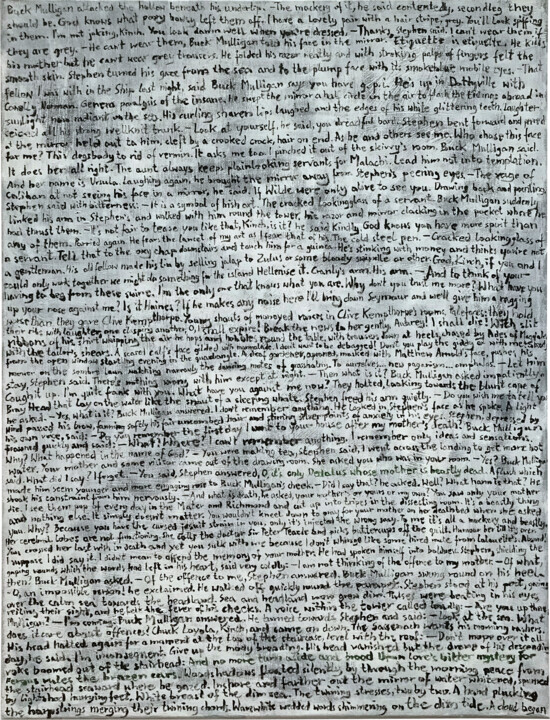 Buck Mulligan attacked the hollow beneath his underlip. -The mockery of it, he said contentedly, secondleg they
should be. God knows what poxy bowsy left them off. I have a lovely pair with a hair stripe, grey. You'll look spiffing
in them. I'm not joking, Kinch. You look damn well when you're dressed. -Thanks, Stephen said. I can't wear them if
they are grey. -He can't wear them, Buck Mulligan told his face in the mirror. Etiquette is etiquette. He kills
his mother but he can't wear grey trousers. He folded his razor neatly and with stroking palps of fingers felt the
smooth skin. Stephen turned his gaze from the sea and to the plump face with its smokeblue mobile eyes. -That
fellow I was with in the Ship last night, said Buck Mulligan says you have g.p.i. He's up in Dottyville with
Conolly Norman. General paralysis of the insane. He swept the mirror a half circle in the air to flash the tidings abroad in
sunlight now radiant on the sea. His curling shaven lips laughed and the edges of his white glittering teeth. Laughter
seized all his strong wellknit trunk. -Look at yourself, he said, you dreadful bard. Stephen bent forward and peered
at the mirror held out to him, cleft by a crooked crack, hair on end. As he and others see me. Who chose this face
for me? This dogsbody to rid of vermin. It asks me too. I pinched it out of the skivvy's room. Buck Mulligan said.
It does her all right. The aunt always keeps plainlooking servants for Malachi. Lead him not into temptation.
And her name is Ursula. Laughing again, he brought the mirror away from Stephen's peering eyes. -The rage of
Caliban at not seeing his face in a mirror, he said. If Wilde were only alive to see you. Drawing back and pointing,
Stephen said with bitterness: -It is a symbol of Irish art. The cracked lookingglass of a servant. Buck Mulligan suddenly
linked his arm in Stephen's and walked with him round the tower, his razor and mirror clacking in the pocket where he
had thrust them. -It's not fair to tease you like that, Kinch, is it? he said kindly. God knows you have more spirit than
any of them. Parried again. He fears the lancet of my art as I fear that of his. The cold steel pen. -Cracked lookingglass of
a servant. Tell that to the oxy chap downstairs and touch him for a guinea. He's stinking with money and thinks you're not
a gentleman. His old fellow made his tin by selling jalap to Zulus or some bloody swindle or other. God, Kinch, if you and I
could only work together we might do something for the island. Hellenise it. Cranly's arm. His arm. -And to think of your
having to beg from these swine. I'm the only one that knows what you are. Why don't you trust me more? What have you
up your nose against me? Is it Haines? If he makes any noise here I'll bring down Seymour and we'll give him a ragging
worse than they gave Clive Kempthorpe. Young shouts of moneyed voices in Clive Kempthorpe's rooms. Palefaces: they hold
their ribs with laughter, one clasping another, O, I shall expire! Break the news to her gently, Aubrey! I shall die! With slit
ribbons of his shirt whipping the air he hops and hobbles round the table, with trousers down at heels, chased by Ades of Magdalen
with the tailor's shears. A scared calf's face gilded with marmalade. I don't want to be debagged! Don't you play the giddy ox with me! Shouts
from the open window startling evening in the quadrangle. A deaf gardener, aproned, masked with Matthew Arnold's face, pushes his
mower on the sombre lawn watching narrowly the dancing motes of grasshalms. To ourselves... new paganism... omphalos. -Let him
stay, Stephen said. There's nothing wrong with him except at night. -Then what is it? Buck Mulligan asked impatiently.
Cough it up. I'm quite frank with you. What have you against me now? They halted, looking towards the blunt cape of
Bray Head that lay on the water like the snout of a sleeping whale. Stephen freed his arm quietly. -Do you wish me to tell you?
he asked. -Yes, what is it? Buck Mulligan answered. I don't remember anything. He looked in Stephen's face as he spoke. A light
wind passed his brow, fanning softly his fair uncombed hair and stirring silver points of anxiety in his eyes. Stephen, depressed by
his own voice, said: -Do you remember the first day I went to your house after my mother's death? Buck Mulligan
frowned quickly and said: -What? Where? I can't remember anything. I remember only ideas and sensations.
Why? What happened in the name of God? -You were making tea, Stephen said. I went across the landing to get more hot
water. Your mother and some visitor came out of the drawing room. She asked you who was in your room. -Yes? Buck Mulligan
said. What did I say? I forget. -You said, Stephen answered, O, it's only Dedalus whose mother is beastly dead. A flush which
made him seem younger and more engaging rose to Buck Mulligan's cheek. -Did I say that? he asked. Well? What harm is that? He
shook his constraint from him nervously. -And what is death, he asked, your mother's or yours or my own? You saw only your mother
die. I see them pop off every day in the Mater and Richmond and cut up into tripes in the dissecting room. It's a beastly thing
and nothing else. It simply doesn't matter. You wouldn't kneel down to pray for your mother on her deathbed when she asked
you. Why? Because you have the cursed jesuit strain in you, only it's injected the wrong way. To me it's all a mockery and beastly.
Her cerebral lobes are not functioning. She calls the doctor Sir Peter Teazle and picks buttercups off the quilt. Humour her till it's over.
You crossed her last wish in death and yet you sulk with me because I don't whinge like some hired mute from Lalouette's. Absurd!
I suppose I did say it. I didn't mean to offend the memory of your mother. He had spoken himself into boldness. Stephen, shielding the
gaping wounds which the words had left in his heart, said very coldly: -I am not thinking of the offence to my mother. -Of what,
then? Buck Mulligan asked. -Of the offence to me, Stephen answered. Buck Mulligan swung round on his heel.
-O, an impossible person! he exclaimed. He walked off quickly round the parapet. Stephen stood at his post, gazing
over the calm sea towards the headland. Sea and headland now grew dim. Pulses were beating in his eyes,
veiling their sight, and he felt the fever of his cheeks. A voice within the tower called loudly: -Are you up there,
Mulligan? -I'm coming, Buck Mulligan answered. He turned towards Stephen and said: -Look at the sea. What
does it care about offences? Chuck Loyola, Kinch, and come on down. The Sassenach wants his morning rashers.
His head halted again for a moment at the top of the staircase, level with the roof: -Don't mope over it all
day, he said. I'm inconsequent. Give up the moody brooding. His head vanished but the drone of his descending
voice boomed out of the stairhead: And no more turn aside and brood Upon love's bitter mystery For
Fergus rules the brazen cars. Woodshadows floated silently by through the morning peace from
the stairhead seaward where he gazed. Inshore and farther out the mirror of water whitened, spurned
by lightshod hurrying feet. White breast of the dim sea. The twining stresses, two by two. A hand plucking
the harpstrings merging their twining chords. Wavewhite wedded words shimmering on the dim tide. A cloud began